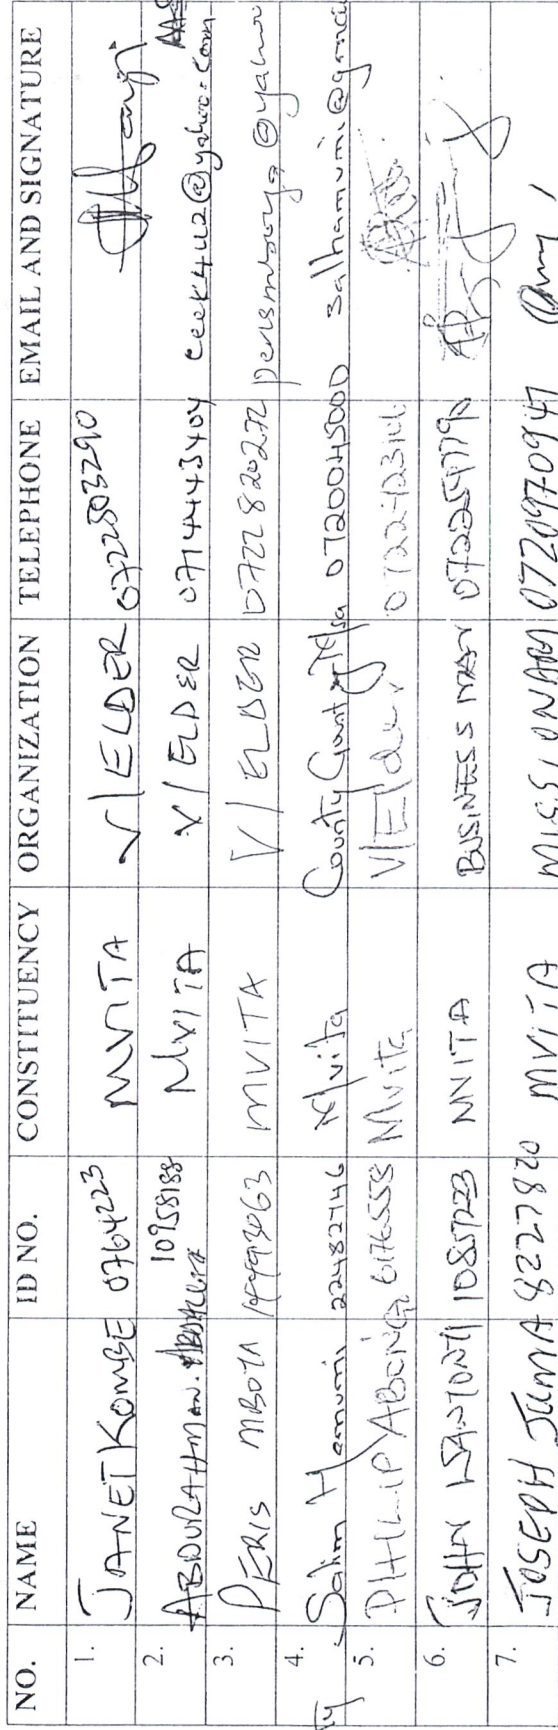 NO. NAME ID NO. CONSTITUENCY ORGANIZATION TELEPHONE EMAIL AND SIGNATURE
1. JANET KOMBE 0764223 MVITA V/ELDER 0722503290
2. ABDURAHMAN 10958188 MVITA V/ELDER 0714443404 ceek4u2@yahoo.com
3. PERIS MBOYA MVITA V/ELDER 0722820272 perismboya@yahoo
4. Salim Hamumi 22482746 Mvita County 0720045000 salhamumi@gmail
5. PHILIP 6176558 Mvita V/Elder
6. JOHN MVITA BUSINESS MAN
7. JOSEPH JUMA 8227820 MVITA 0720970947